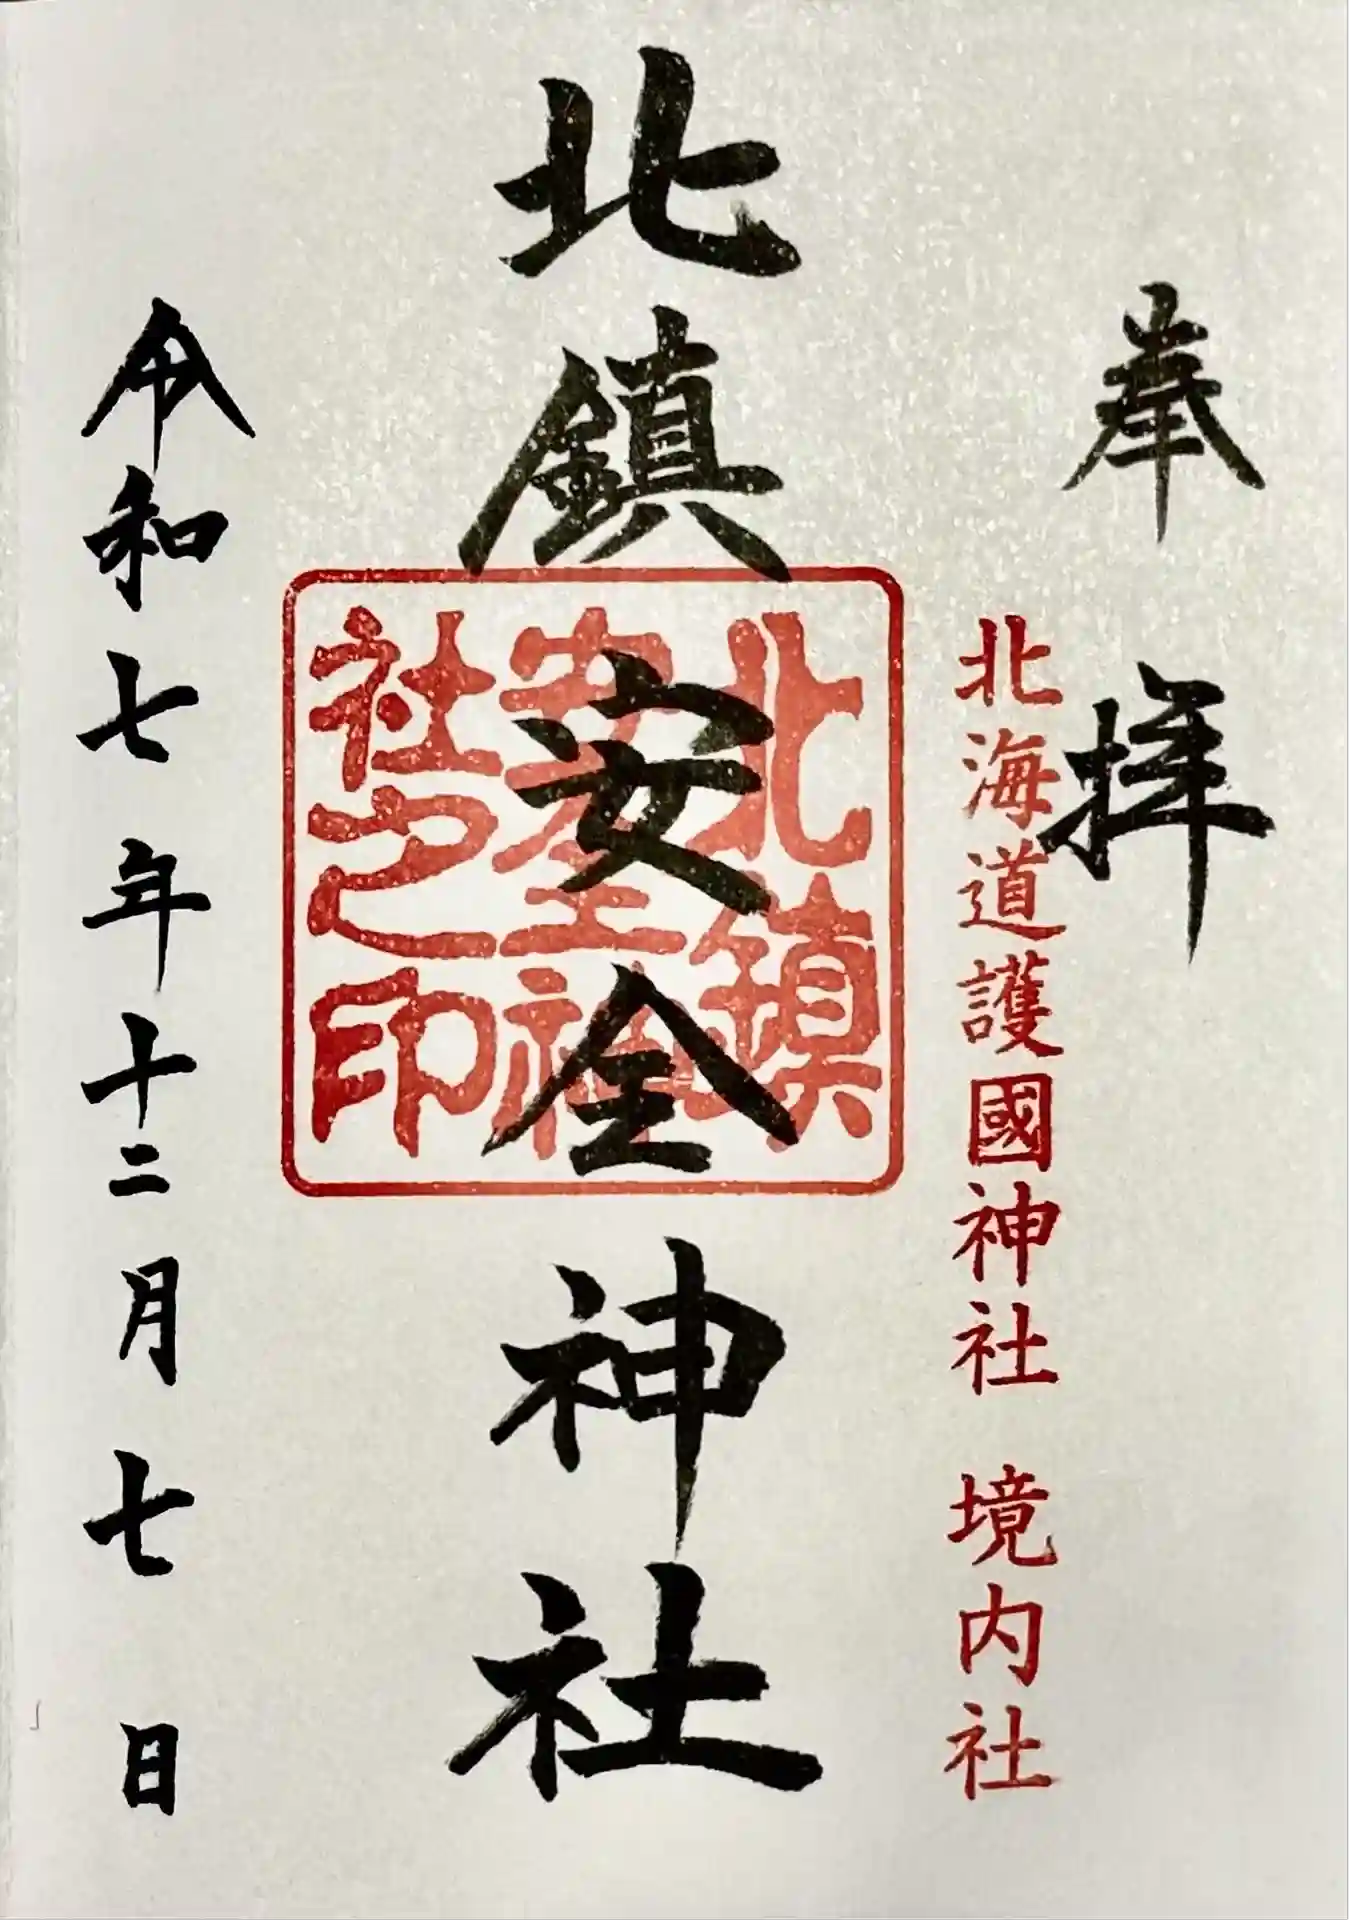 奉拝
北海道護國神社 境内社
北鎮安全神社
北鎮
安全神
社之印
令和七年十二月七日